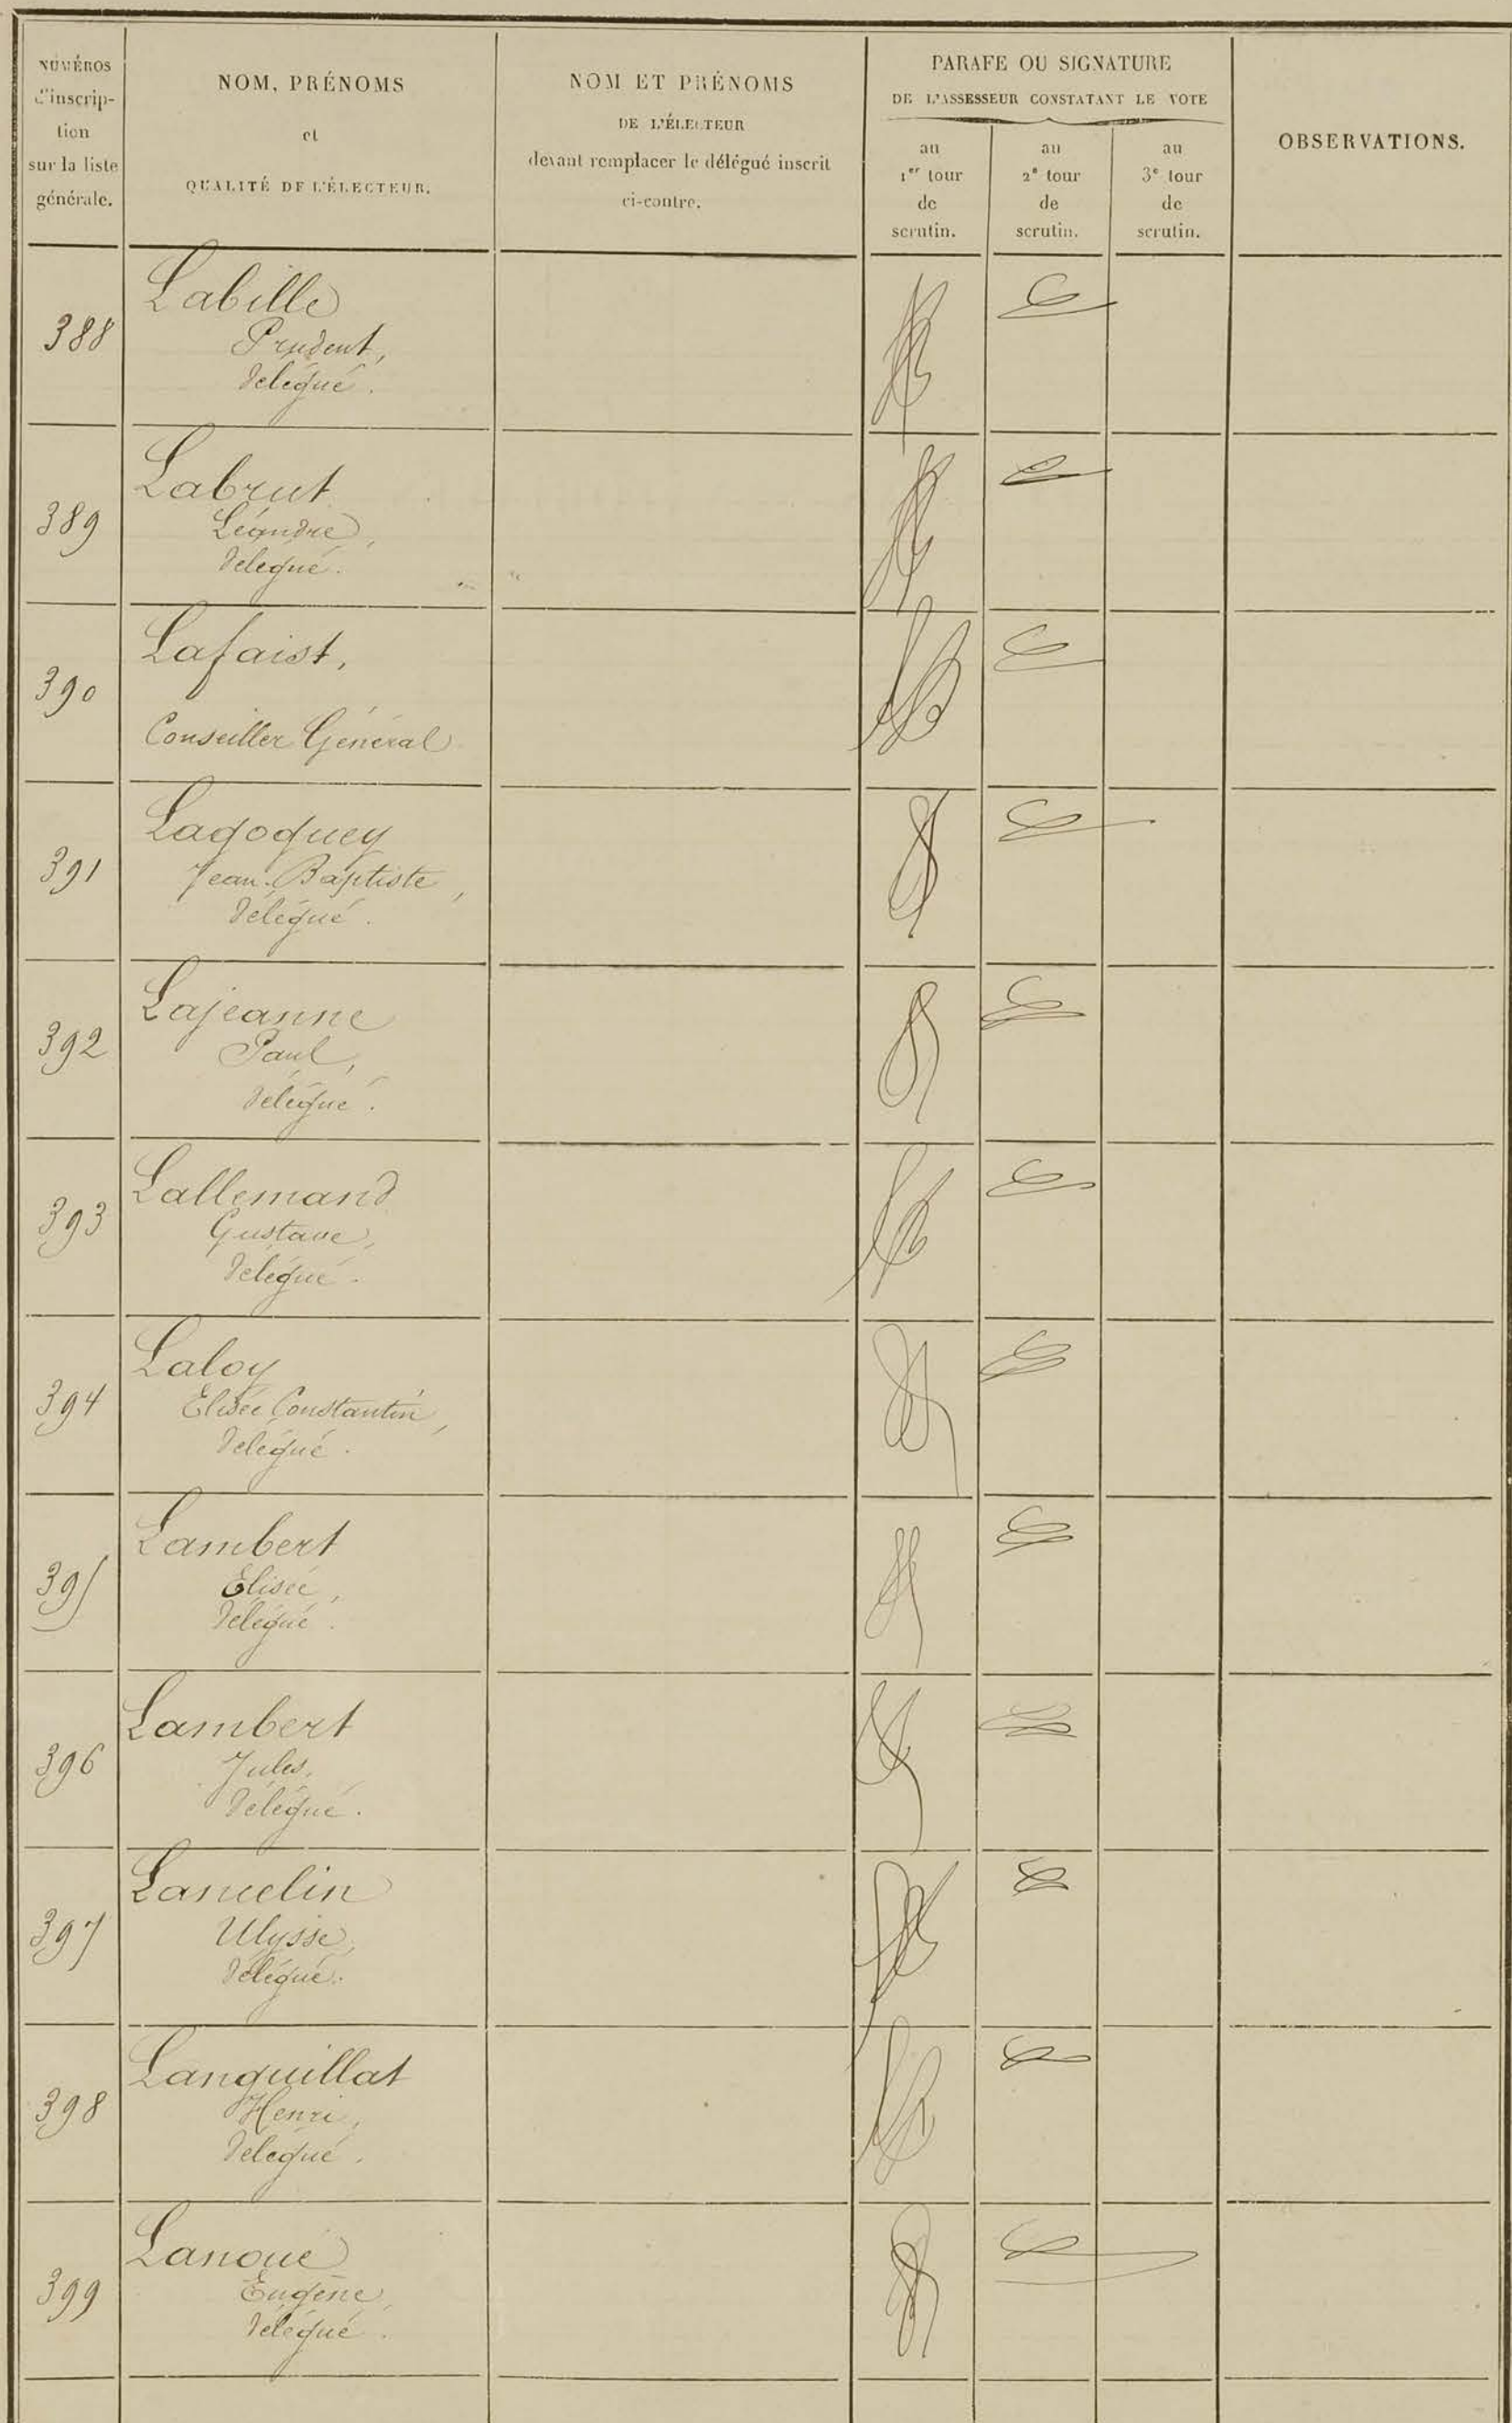 NUMÉROS
d'inscrip-
tion
sur la liste
générale.
NOM, PRÉNOMS
et
QUALITÉ DE L'ÉLECTEUR.
NOM ET PRÉNOMS
DE L'ÉLECTEUR
devant remplacer le délégué inscrit
ci-contre.
PARAFE OU SIGNATURE
DE L'ASSESSEUR CONSTATANT LE VOTE
au
1er tour
de
scrutin.
au
2e tour
de
scrutin.
au
3e tour
de
scrutin.
OBSERVATIONS.
388
Labille
Prudent,
Délégué.
389
Labrut
Léandre,
Délégué.
390
Lafaist,
Conseiller Général
391
Lagoguey
Jean-Baptiste,
Délégué.
392
Lajeanne
Paul,
Délégué.
393
Lallemand
Gustave,
Délégué.
394
Laloy
Elisée Constantin,
Délégué.
395
Lambert
Elisée,
Délégué.
396
Lambert
Jules,
Délégué.
397
Lamelin
Ulysse,
Délégué.
398
Languillat
Henri,
Délégué.
399
Lanoué
Eugène,
Délégué.